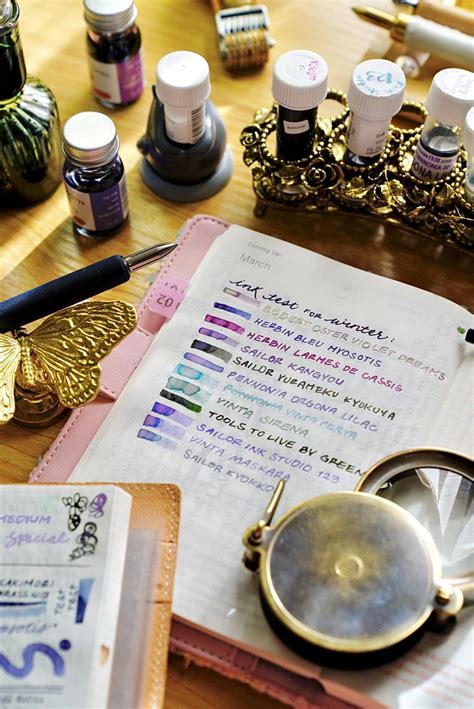 Coming Up!
March
02
ink test for winter:
ROBERT OSTER VIOLET DREAMS
HERBIN BLEU MYOSOTIS
HERBIN LARMES DE CASSIS
SAILOR KANGYOU
SAILOR YURAMEKU KYOKUYA
PENNONIA ORGONA LILAC
PENNONIA VINTA PERYA
VINTA SIRENA
TOOLS TO LIVE BY GREEN
SAILOR INK STUDIO 123
VINTA MASKARA
SAILOR KYOKKO
MEDIUM
Special
KAKIMORI
BRASS NIB
TEST
TEST
myosotis